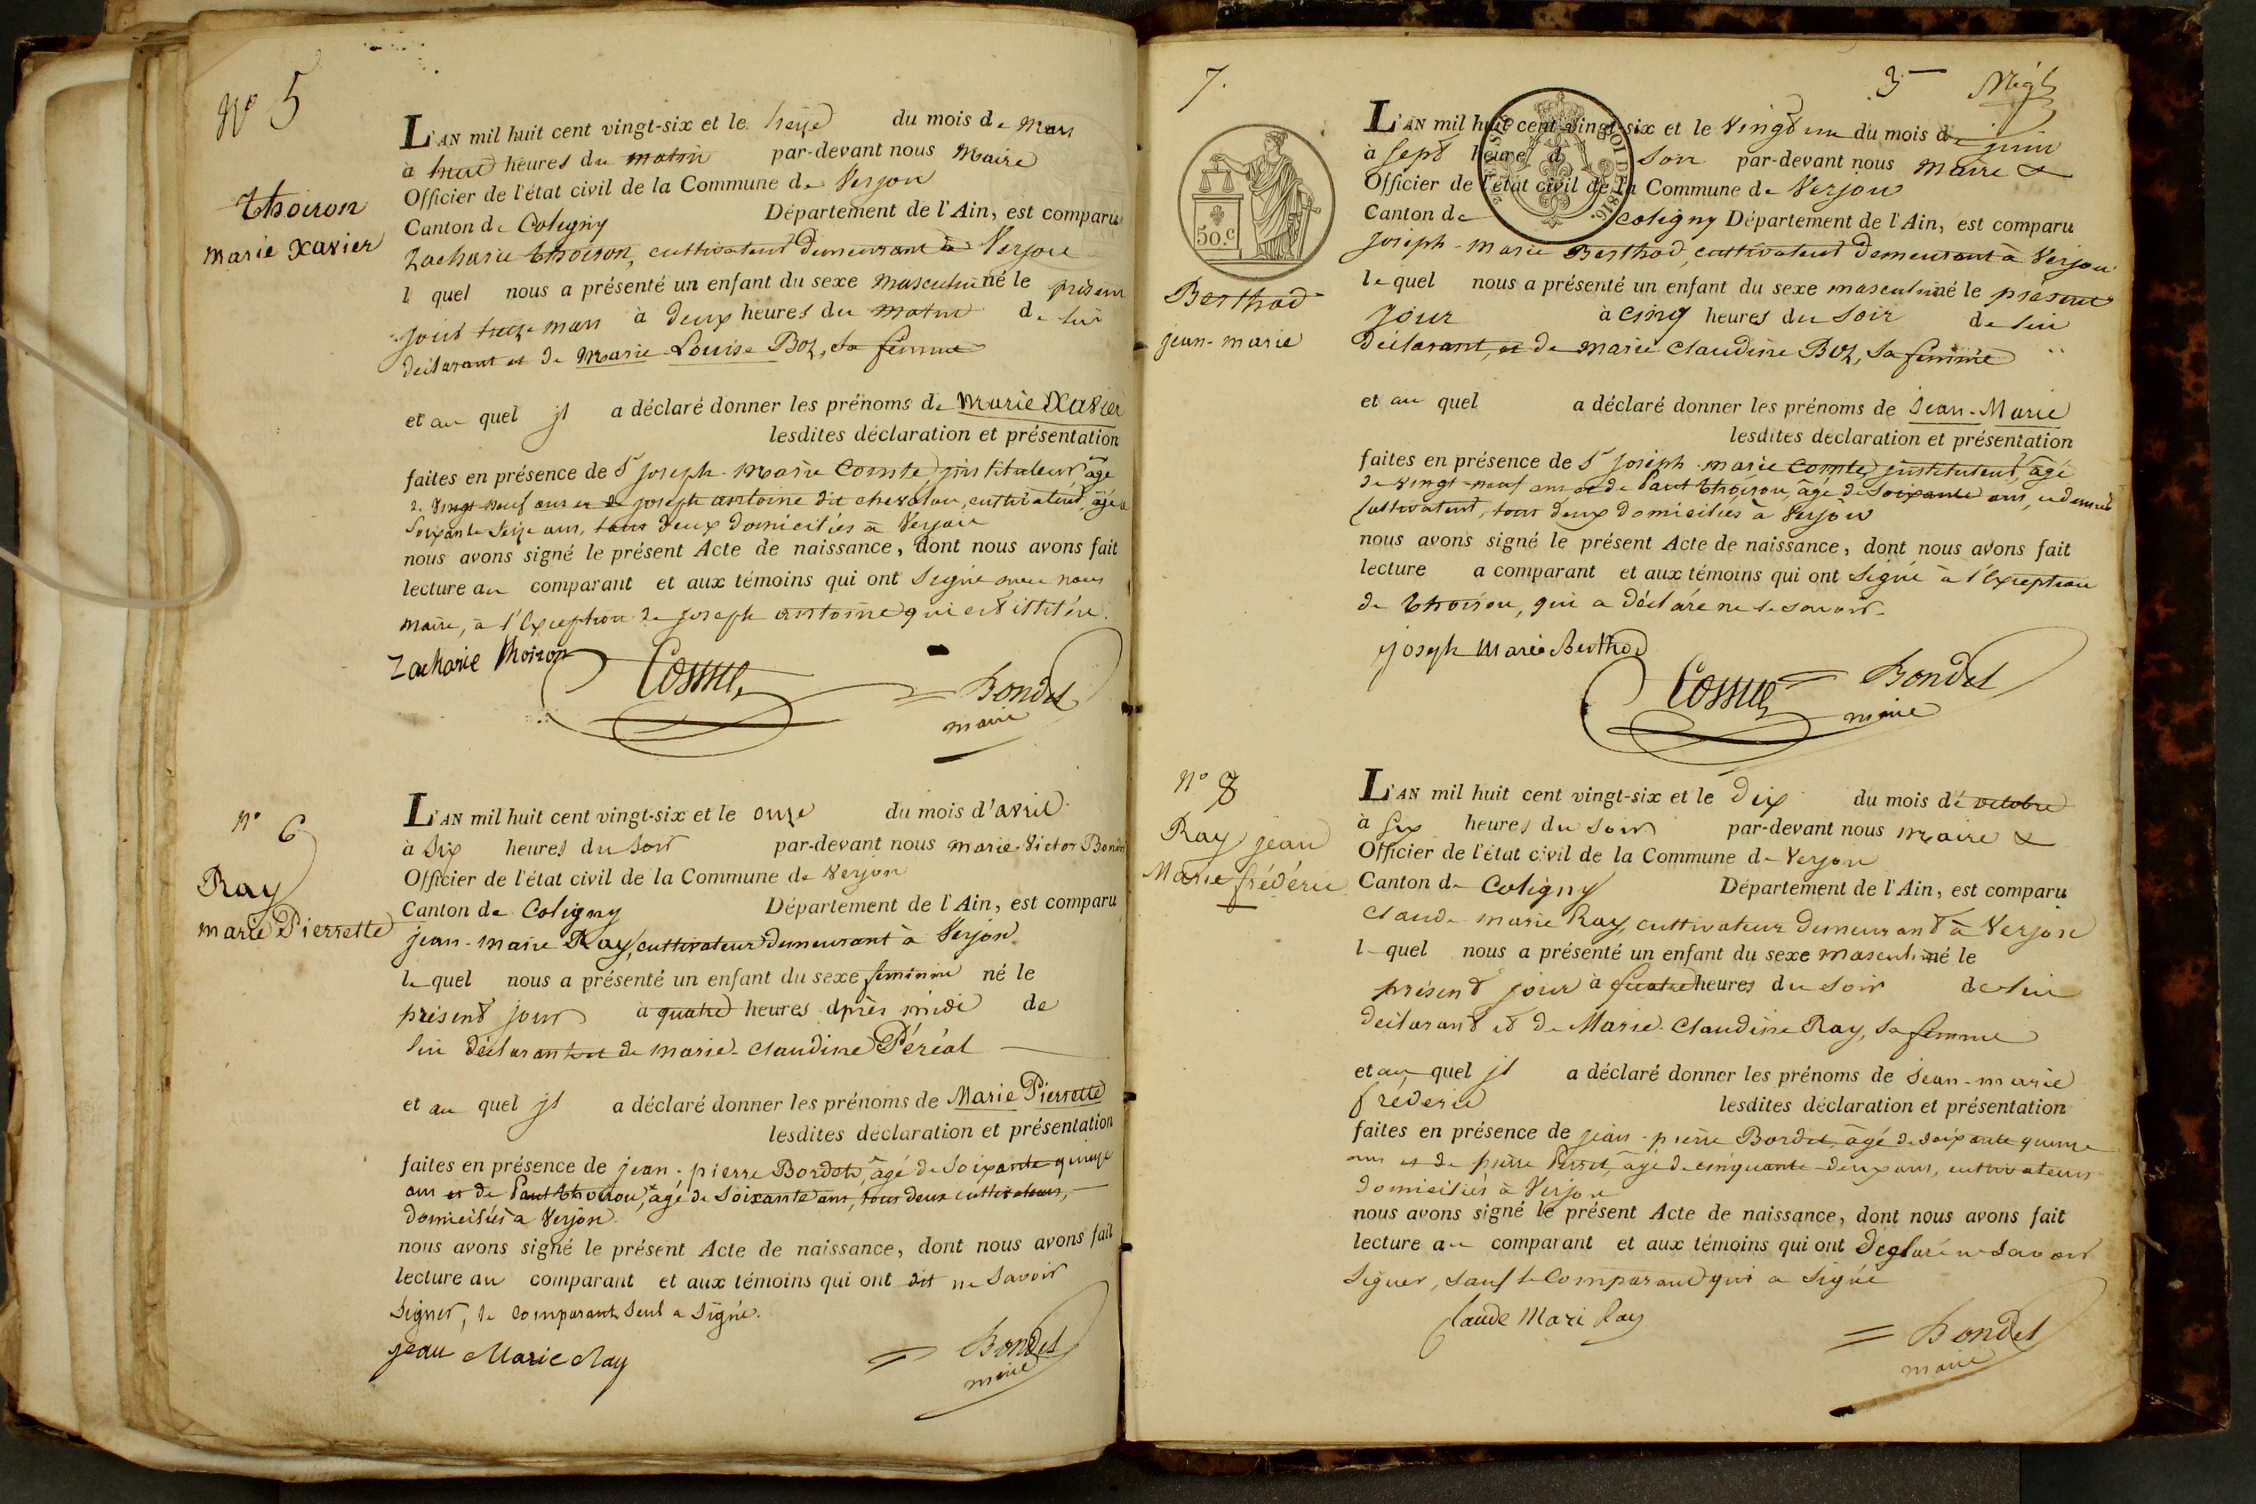 N° 5
Thoiron
marie Xavier
L'AN mil huit cent vingt-six et le treize du mois de mars
à huit heures du matin par-devant nous Maire
Officier de l'état civil de la Commune de Verjon
Canton de Coligny Département de l'Ain, est comparu
Zacharie thoiron, cultivateur demeurant à Verjon
l quel nous a présenté un enfant du sexe masculin né le présent
jour treize mars à deux heures du matin de lui
déclarant et de Marie Louise Boz, sa femme
et au quel jl a déclaré donner les prénoms de Marie Xavier
lesdites déclaration et présentation
faites en présence de Sr joseph-Marie Comte, jnstituteur âgé
de vingt neuf ans et de joseph antoine dit chevalou, cultivateur, âgé de
Soixante Seize ans, tous deux domiciliés à Verjon
nous avons signé le présent Acte de naissance, dont nous avons fait
lecture au comparant et aux témoins qui ont Signé avec nous
maire, à l'Exception de joseph antoine qui est illitéré.
Zacharie thoiron
Comte
Bondet
maire
N° 6
Ray
marie Pierrette
L'AN mil huit cent vingt-six et le onze du mois d'avril
à Six heures du Soir par-devant nous marie-Victor Bondet
Officier de l'état civil de la Commune de Verjon
Canton de Coligny Département de l'Ain, est comparu
jean-marie Ray, cultivateur demeurant à Verjon
le quel nous a présenté un enfant du sexe feminin né le
présent jour à quatre heures après midi de
lui déclarant et de marie-Claudine Péréal
et au quel jl a déclaré donner les prénoms de Marie Pierrette
lesdites déclaration et présentation
faites en présence de jean-pierre Bordet, âgé de Soixante quinze
ans et de Paul thoiron, âgé de Soixante ans, tous deux cultivateurs,
domiciliés à Verjon
nous avons signé le présent Acte de naissance, dont nous avons fait
lecture au comparant et aux témoins qui ont dit ne Savoir
Signer, le comparant Seul a Signé.
jean Marie Ray
Bondet
maire
7.
3
50.c
Berthod
jean-marie
L'AN mil huit cent vingt-six et le Vingt un du mois de juin
à Sept heures du Soir par-devant nous Maire &
Officier de l'état civil de la Commune de Verjon
Canton de Coligny Département de l'Ain, est comparu
joseph-Marie Berthod, cultivateur demeurant à Verjon
le quel nous a présenté un enfant du sexe masculin né le présent
jour à cinq heures du Soir de lui
déclarant, et de Marie Claudine Boz, Sa femme
et au quel a déclaré donner les prénoms de Jean-Marie
lesdites déclaration et présentation
faites en présence de Sr Joseph-marie Comte, jnstituteur, âgé
de vingt-neuf ans et de Paul thoiron, âgé de Soixante ans,
Cultivateur, tous deux domiciliés à Verjon
nous avons signé le présent Acte de naissance, dont nous avons fait
lecture a comparant et aux témoins qui ont Signé à l'Exception
de thoiron, qui a déclaré ne le savoir.
joseph Marie Berthod
Comte
Bondet
maire
N° 8
Ray jean
Marie frédéric
L'AN mil huit cent vingt-six et le dix du mois de octobre
à Six heures du Soir par-devant nous Maire &
Officier de l'état civil de la Commune de Verjon
Canton de Coligny Département de l'Ain, est comparu
Claude marie Ray, cultivateur demeurant à Verjon
l quel nous a présenté un enfant du sexe masculin né le
présent jour à quatre heures du Soir de lui
déclarant et de Marie-Claudine Ray, Sa femme
et au quel jl a déclaré donner les prénoms de jean-marie
fréderic lesdites déclaration et présentation
faites en présence de jean-pierre Bordet, âgé de Soixante quinze
ans et de pierre Perret, âgé de cinquante-deux ans, cultivateurs
domiciliés à Verjon
nous avons signé le présent Acte de naissance, dont nous avons fait
lecture au comparant et aux témoins qui ont déclaré ne Savoir
Signer, Sauf le Comparant qui a Signé
Claude Mari Ray
Bondet
maire